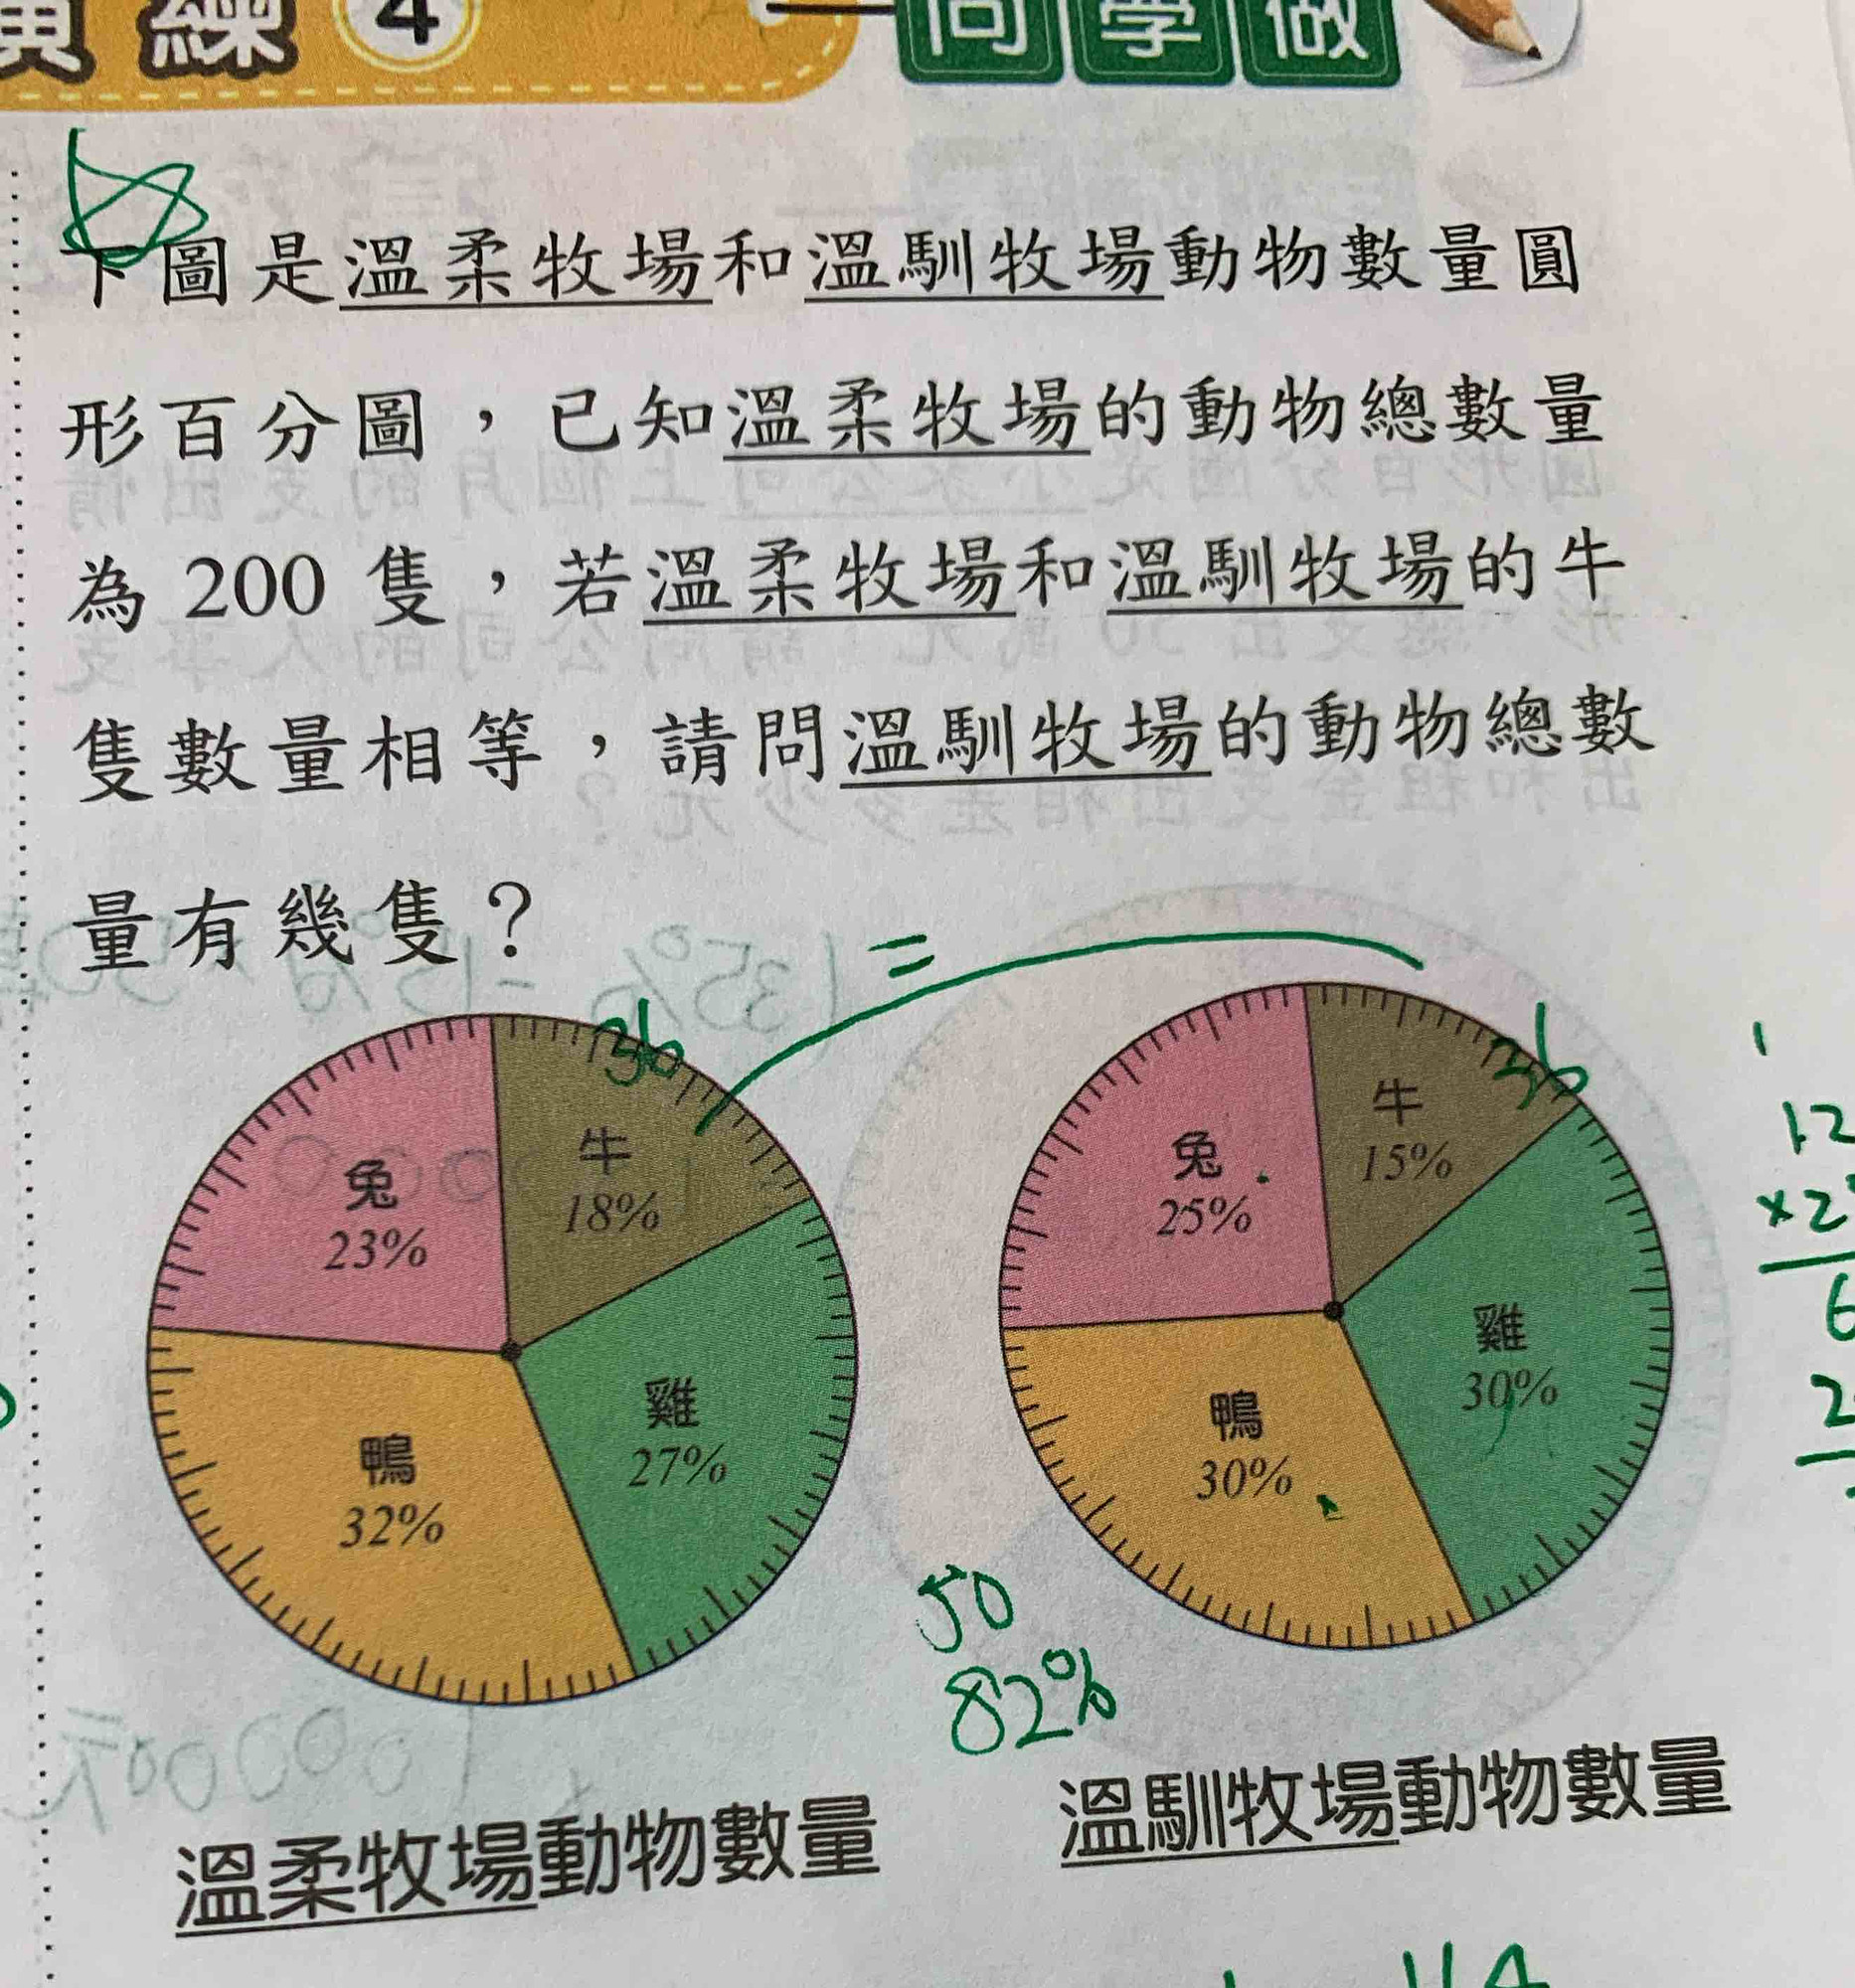 練 4 同學做
下圖是溫柔牧場和溫馴牧場動物數量圓
形百分圖，已知溫柔牧場的動物總數量
為 200 隻，若溫柔牧場和溫馴牧場的牛
隻數量相等，請問溫馴牧場的動物總數
量有幾隻？
=
36
36
牛
18%
兔
23%
雞
27%
鴨
32%
牛
15%
兔
25%
雞
30%
鴨
30%
12
×2
6
2
50
82%
溫柔牧場動物數量
溫馴牧場動物數量